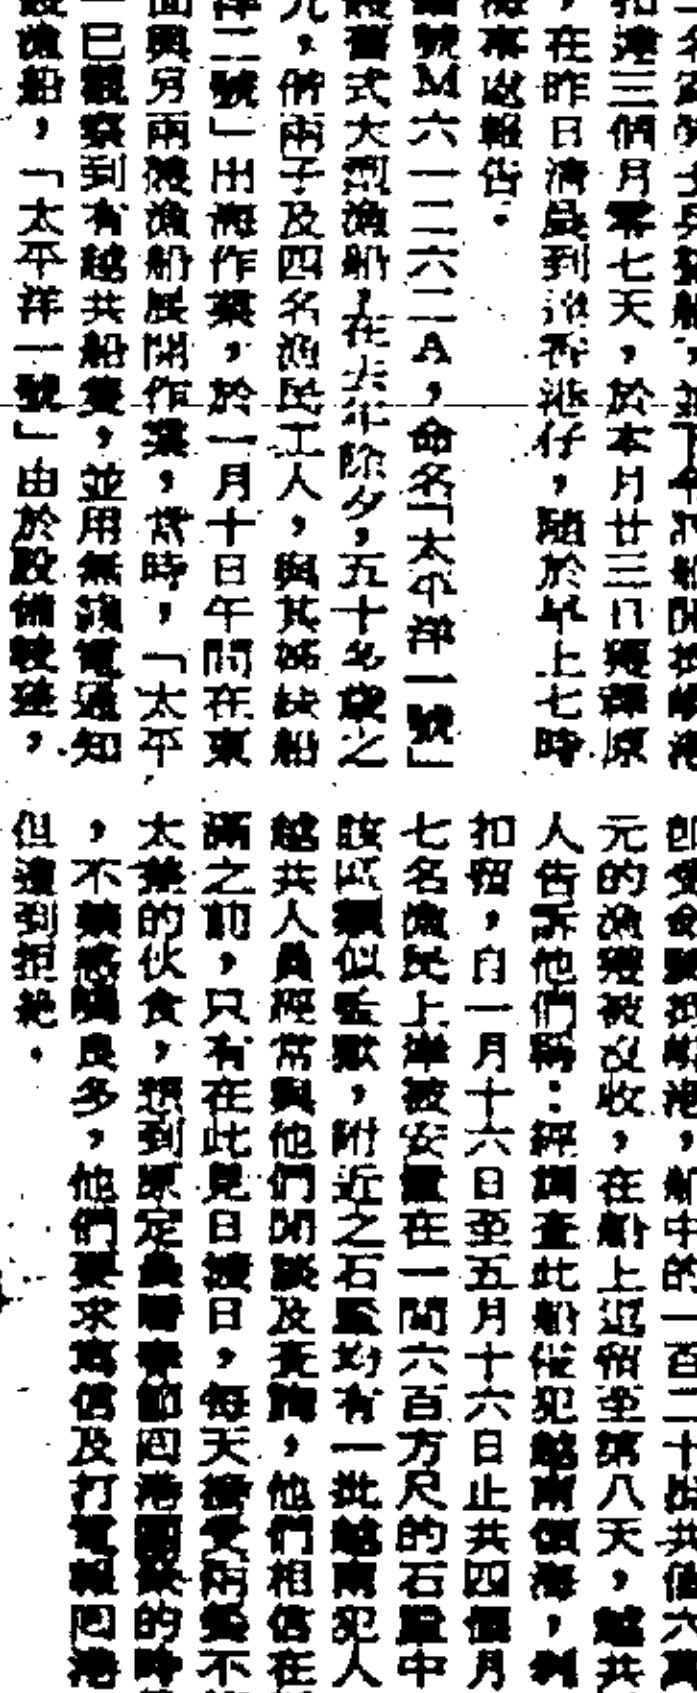 二名
扣達三個月零七天，於本月廿三日獲釋原
，在昨日清晨到達香港仔，隨於早上七時
海事處報告。
號M六一二六二A，命名「太平洋一號」
舊式大型漁船，在去年除夕，五十多歲之
，偕兩子及四名漁民工人，與其姊妹船
洋二號」出海作業，於一月十日午間在東
面與另兩艘漁船展開作業，當時，「太平
已觀察到有越共船隻，並用無線電通知
漁船，「太平洋一號」由於設備較差，
越港，船中的一百二十擔共值六萬
元的漁獲被沒收，在船上逗留至第八天，越共
人告訴他們稱：經調查此船侵犯越南領海，判
扣留，自一月十六日至五月十六日止共四個月
七名漁民上岸被安置在一間六百方尺的石屋中
該區類似監獄，附近之石屋均有一批越南犯人
越共人員經常與他們閒談及查詢，他們相信在
滿之前，只有在此見日渡日，每天接受兩餐不
太差的伙食，想到原定農曆春節回港團聚的時
，不禁感觸良多，他們要求寫信及打電報回港
但遭到拒絕。